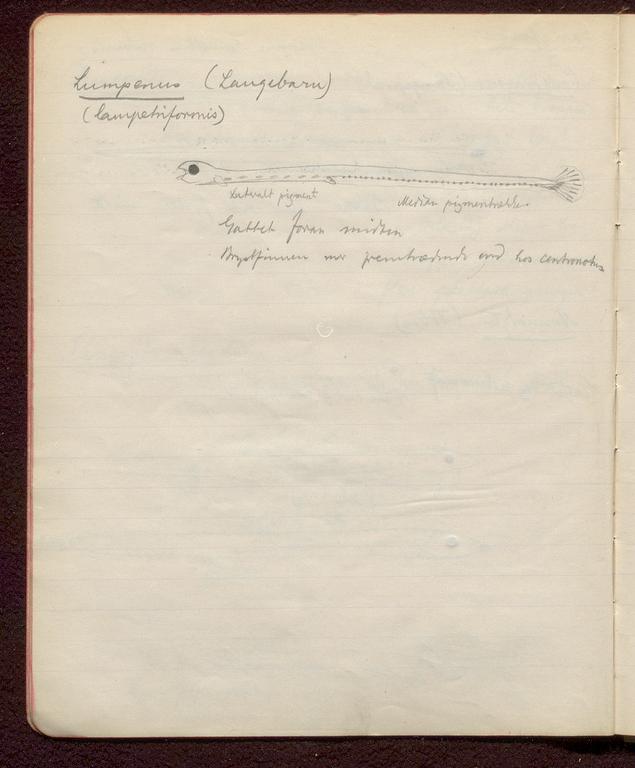 Lumpenus (Langebarn)
(lampetriformis)
Lateralt pigment
Median pigmentrække.
Gattet foran midten
Brystfinnen mer fremtrædende end hos centronotus